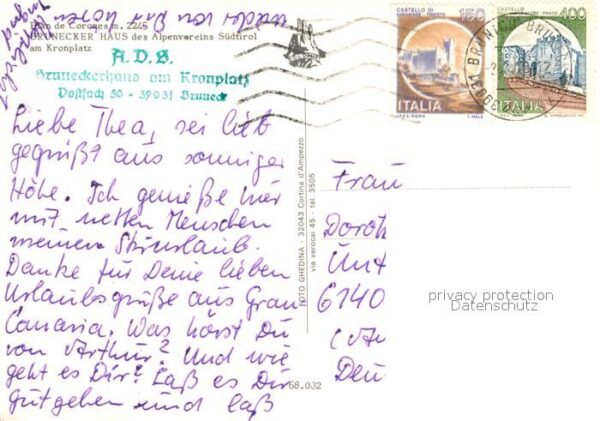 Plan de Corones m. 2245
BRUNECKER HAUS des Alpenvereins Südtirol
am Kronplatz
A.D.S.
Bruneckerhaus am Kronplatz
Postfach 50 - 39031 Bruneck
Liebe Thea, sei lieb
gegrüßt aus sonniger
Höhe. Ich genieße hier
mit netten Menschen
meinen Skiurlaub.
Danke für Deine lieben
Urlaubsgrüße aus Gran
Canaria. Was hörst Du
von Arthur? Und wie
geht es Dir? Laß es Dir
gut gehen und laß
wieder von Dir hören
FOTO GHEDINA - 32043 Cortina d'Ampezzo
via verocai 45 - tel. 3505
68.032
CASTELLO DI
MIRAMARE TRIESTE
150
ITALIA
CASTELLO
400
ITALIA
Frau
Doroth
Unt
6140
Deu
privacy protection
Datenschutz